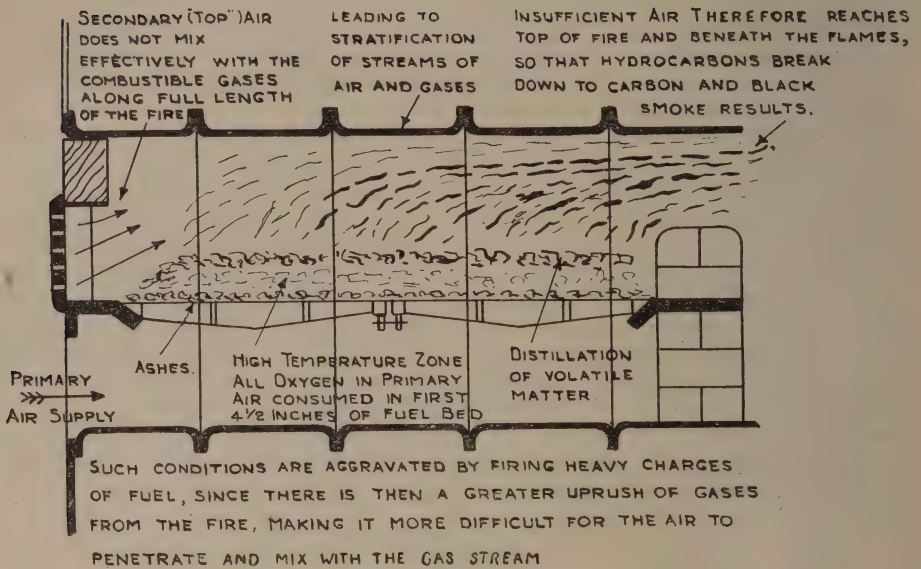 SECONDARY (TOP") AIR
DOES NOT MIX
EFFECTIVELY WITH THE
COMBUSTIBLE GASES
ALONG FULL LENGTH
OF THE FIRE
LEADING TO
STRATIFICATION
OF STREAMS OF
AIR AND GASES
INSUFFICIENT AIR THEREFORE REACHES
TOP OF FIRE AND BENEATH THE FLAMES,
SO THAT HYDROCARBONS BREAK
DOWN TO CARBON AND BLACK
SMOKE RESULTS.
PRIMARY
AIR SUPPLY
ASHES.
HIGH TEMPERATURE ZONE
ALL OXYGEN IN PRIMARY
AIR CONSUMED IN FIRST
4 1/2 INCHES OF FUEL BED
DISTILLATION
OF VOLATILE
MATTER
SUCH CONDITIONS ARE AGGRAVATED BY FIRING HEAVY CHARGES
OF FUEL, SINCE THERE IS THEN A GREATER UPRUSH OF GASES
FROM THE FIRE, MAKING IT MORE DIFFICULT FOR THE AIR TO
PENETRATE AND MIX WITH THE GAS STREAM